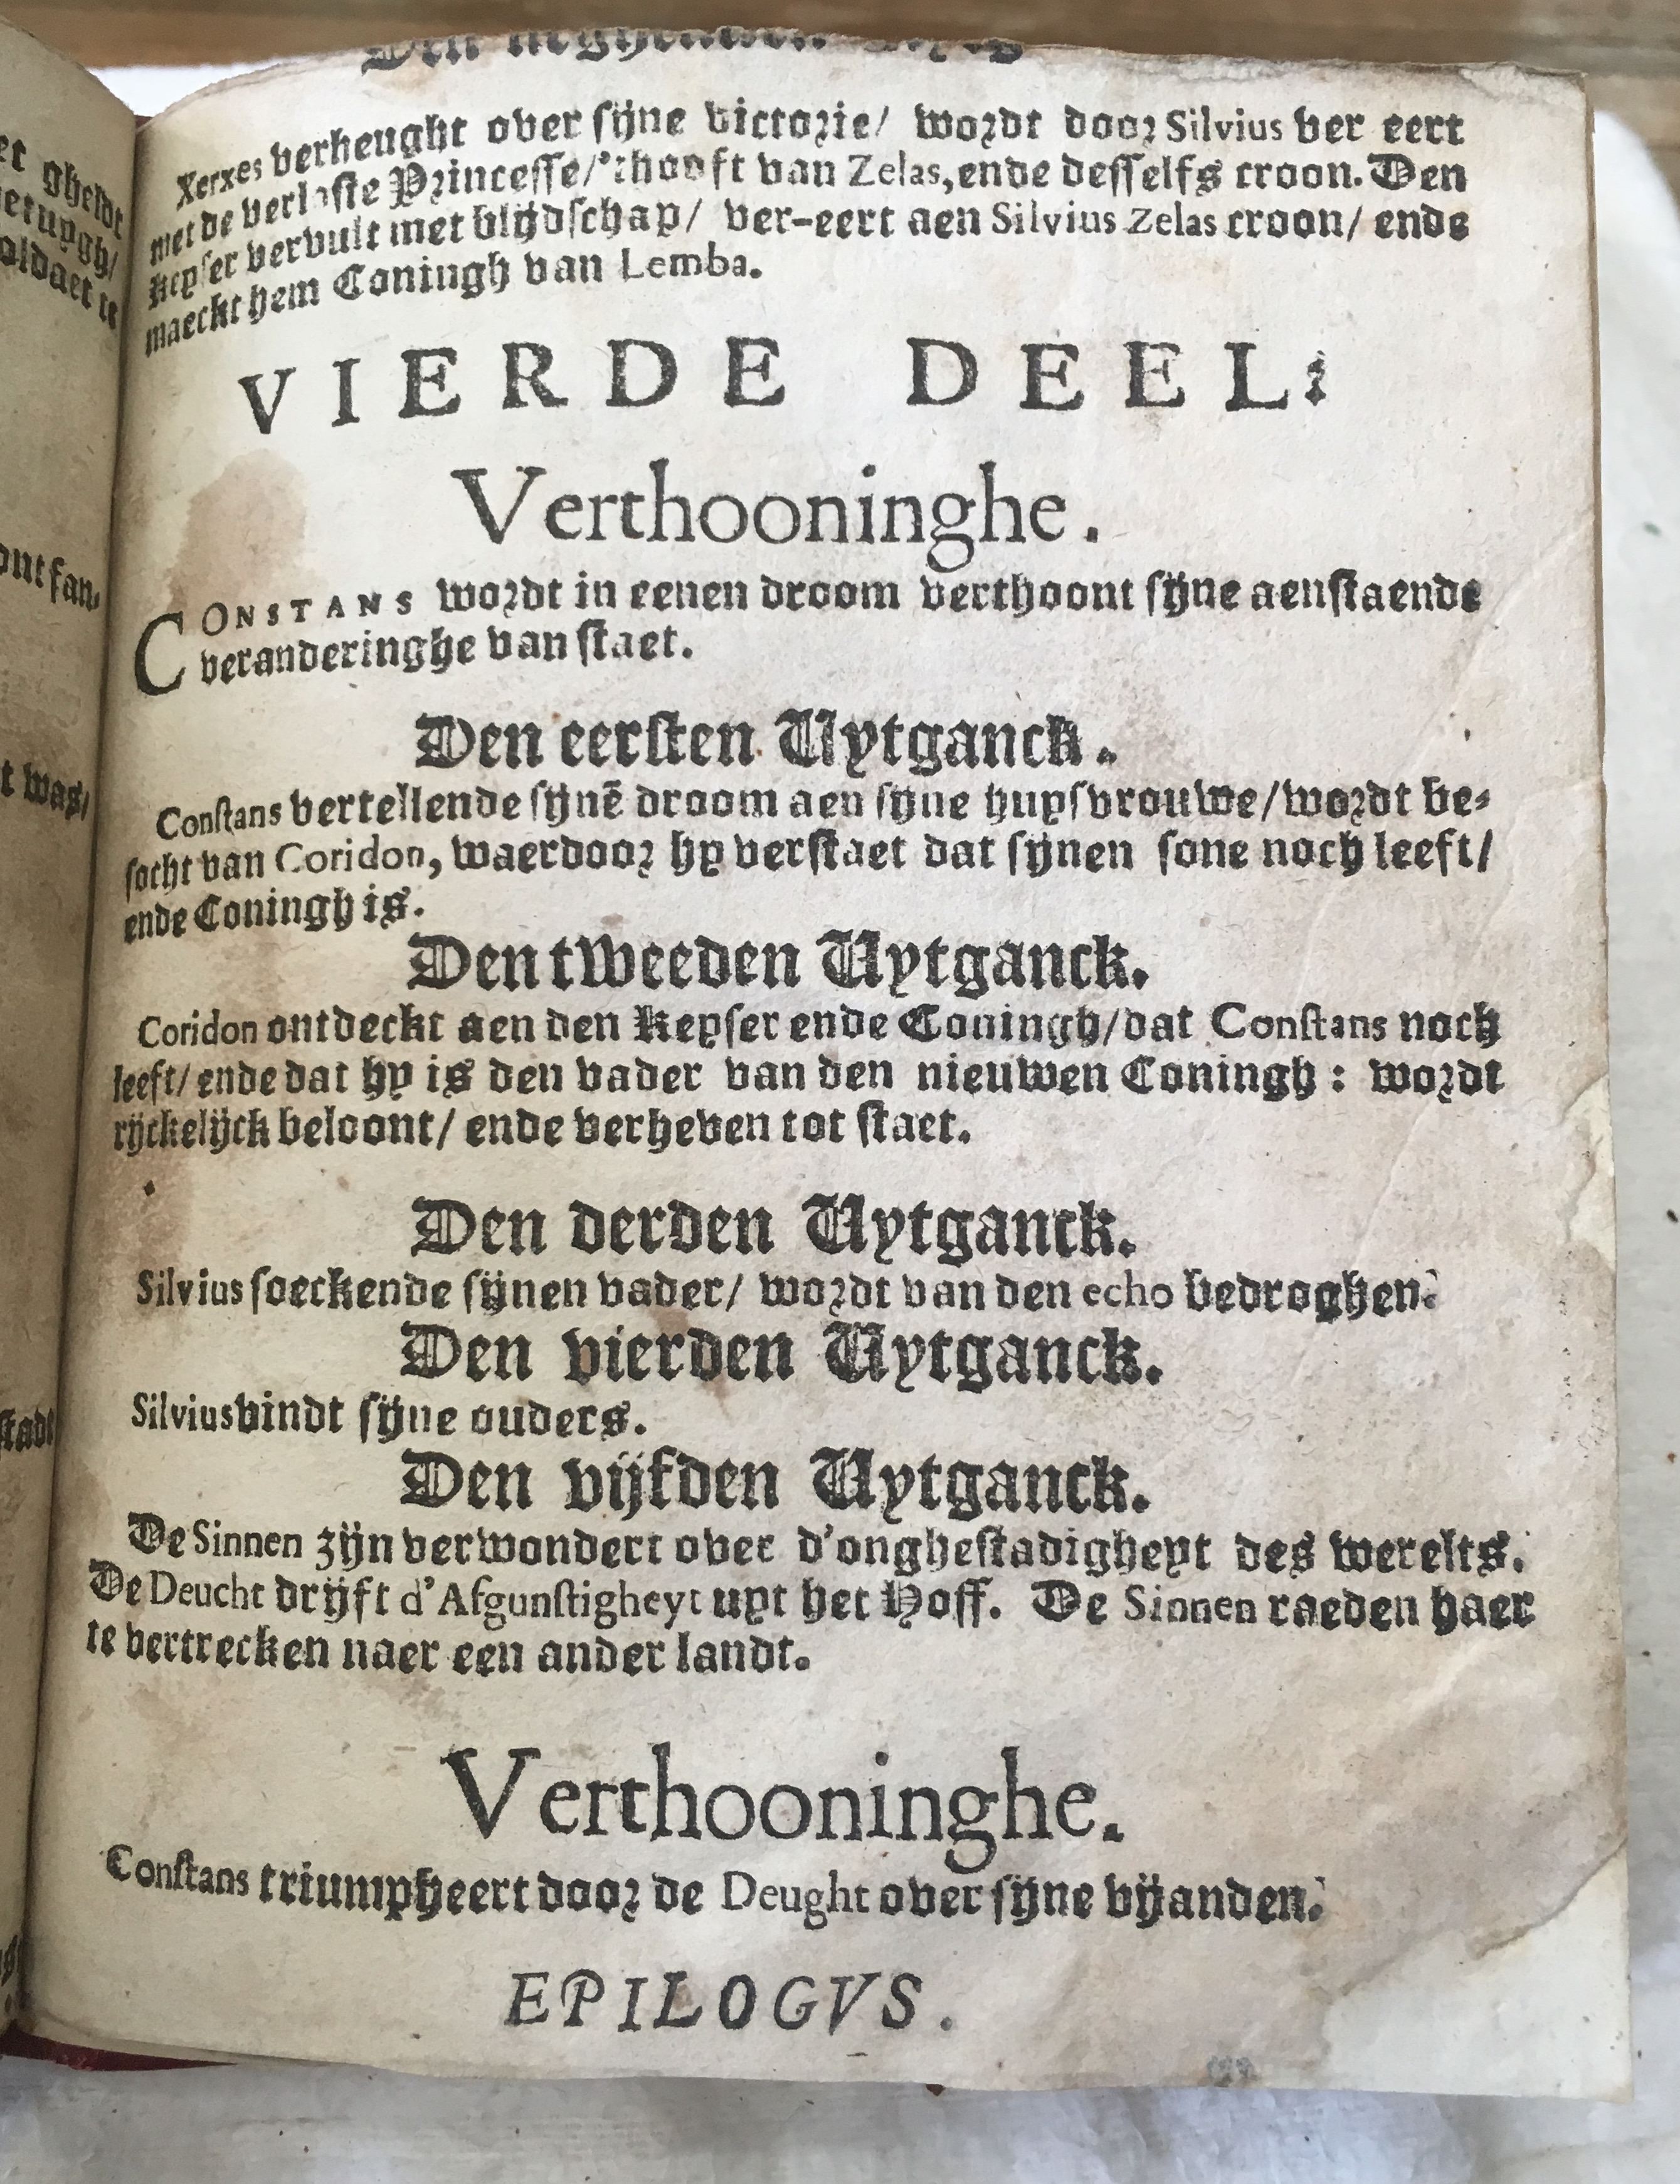 Xerxes verheught over sijne victorie/ wordt door Silvius ver eert
met de verloste Princesse/ 'thooft van Zelas, ende desselfs croon. Den
Keyser vervult met blijdschap/ ver-eert aen Silvius Zelas croon/ ende
maeckt hem Coningh van Lemba.
VIERDE DEEL.
Verthooninghe.
CONSTANS wordt in eenen droom verthoont sijne aenstaende
veranderinghe van staet.
Den eersten Uytganck.
Constans vertellende sijnē droom aen sijne huysvrouwe/ wordt be-
socht van Coridon, waerdoor hy verstaet dat sijnen sone noch leeft/
ende Coningh is.
Den tweeden Uytganck.
Coridon ontdeckt aen den Keyser ende Coningh/ dat Constans noch
leeft/ ende dat hy is den vader van den nieuwen Coningh: wordt
rijckelijck beloont/ ende verheven tot staet.
Den derden Uytganck.
Silvius soeckende sijnen vader/ wordt van den echo bedroghen.
Den vierden Uytganck.
Silvius vindt sijne ouders.
Den vijfden Uytganck.
De Sinnen zijn verwondert over d'onghestadigheyt des werelts.
De Deucht drijft d'Afgunstigheyt uyt het Hoff. De Sinnen raeden haer
te vertrecken naer een ander landt.
Verthooninghe.
Constans triumpheert door de Deught over sijne vijanden.
EPILOGVS.